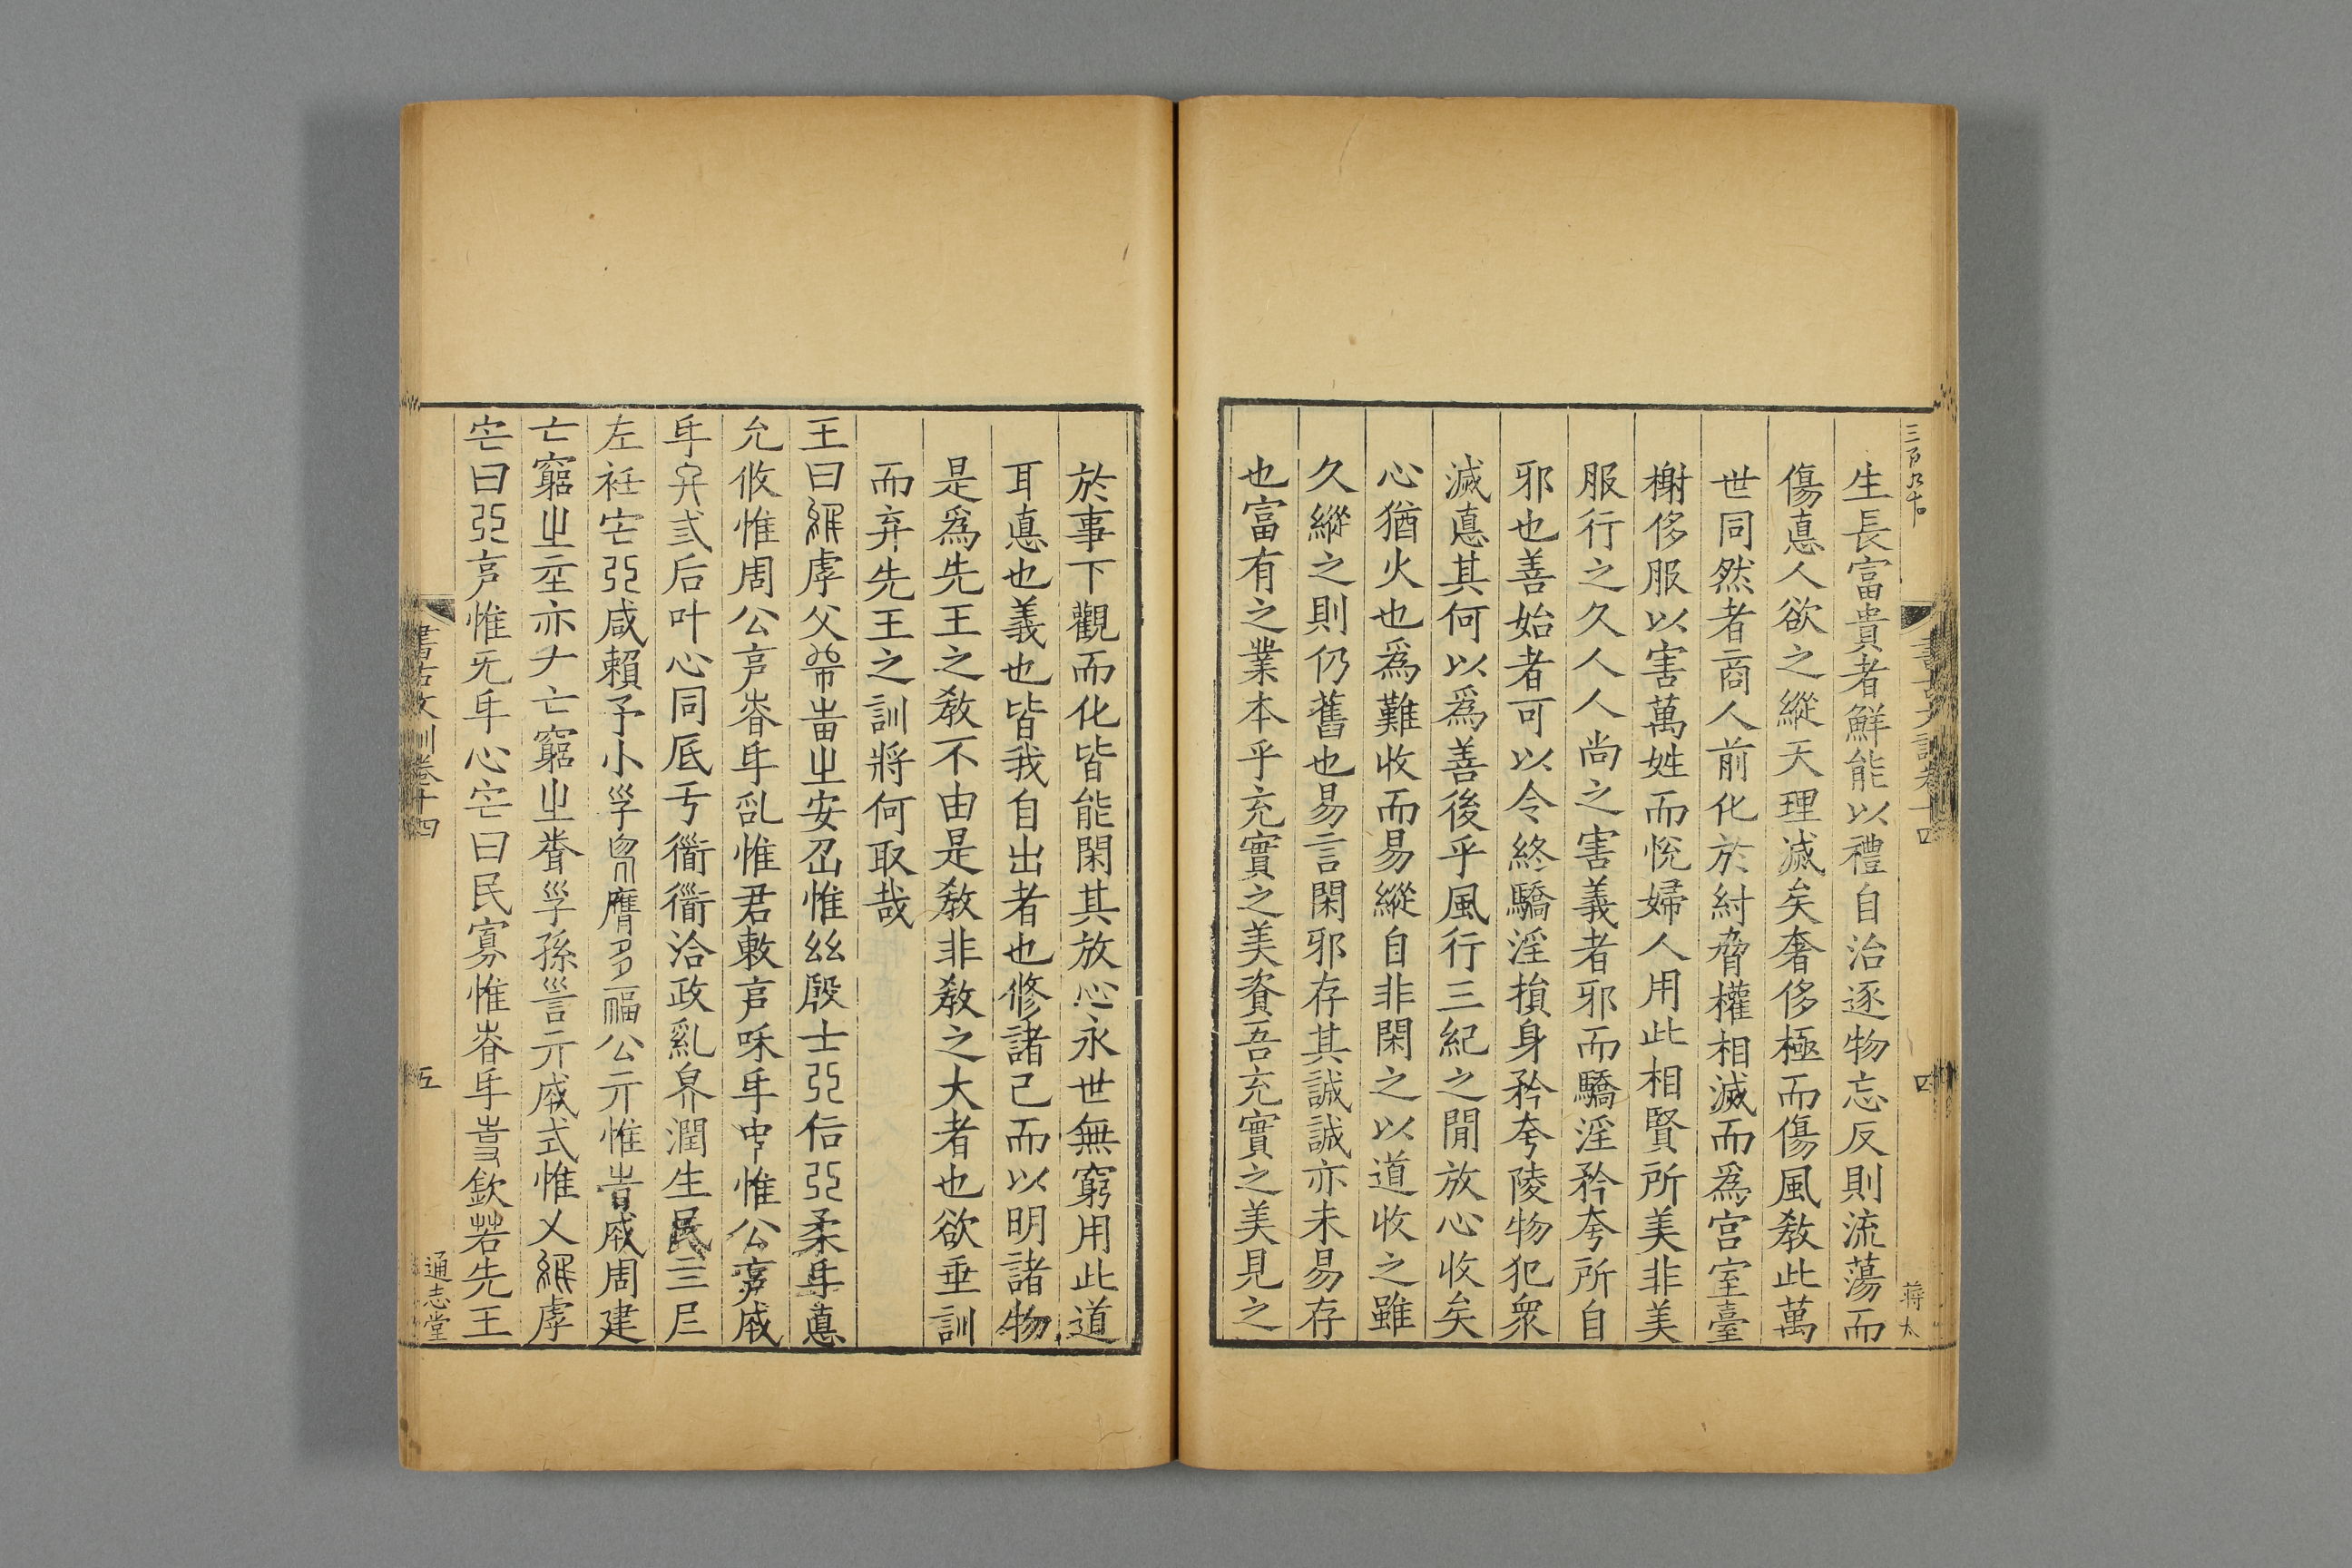 書古文訓卷十四
四
蔣太
生長富貴者鮮能以禮自治逐物忘反則流蕩而
傷悳人欲之縱天理滅矣奢侈極而傷風敎此萬
世同然者商人前化於紂脅權相滅而爲宫室臺
榭侈服以害萬姓而悅婦人用此相賢所美非美
服行之久人人尚之害義者邪而驕淫矜夸所自
邪也善始者可以令終驕淫損身矜夸陵物犯衆
滅悳其何以爲善後乎風行三紀之閒放心收矣
心猶火也爲難收而易縱自非閑之以道收之雖
久縱之則仍舊也易言閑邪存其誠誠亦未易存
也富有之業本乎充實之美資吾充實之美見之
於事下觀而化皆能閑其放心永世無窮用此道
耳悳也義也皆我自出者也修諸己而以明諸物
是爲先王之敎不由是敎非敎之大者也欲垂訓
而弃先王之訓將何取哉
王曰綏虖父㠯帀旹㞢安卲惟丝殷士亞㐰亞柔𠂆悳
允攸惟周公亯昚𠂆乿惟君敶亯咊𠂆中惟公亯成
𠂆弁弎后叶心同厎亏衜衜洽政乿㚖潤生民三𡰥
左衽宔亞咸賴予小孚膺多福公亓惟旹成周建
亡竆㞢亓亦ナ亡竆㞢孚孫訓亓成式惟乂虖
宔曰亞亯惟旡𠂆心宔曰民寡惟昚𠂆欽若先王
書古文訓卷十四
五
通志堂